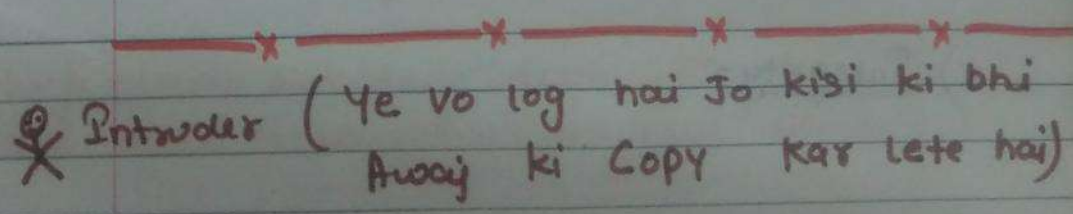 Intruder ( Ye vo log hai Jo kisi ki bhi
Awaj ki Copy kar lete hai)